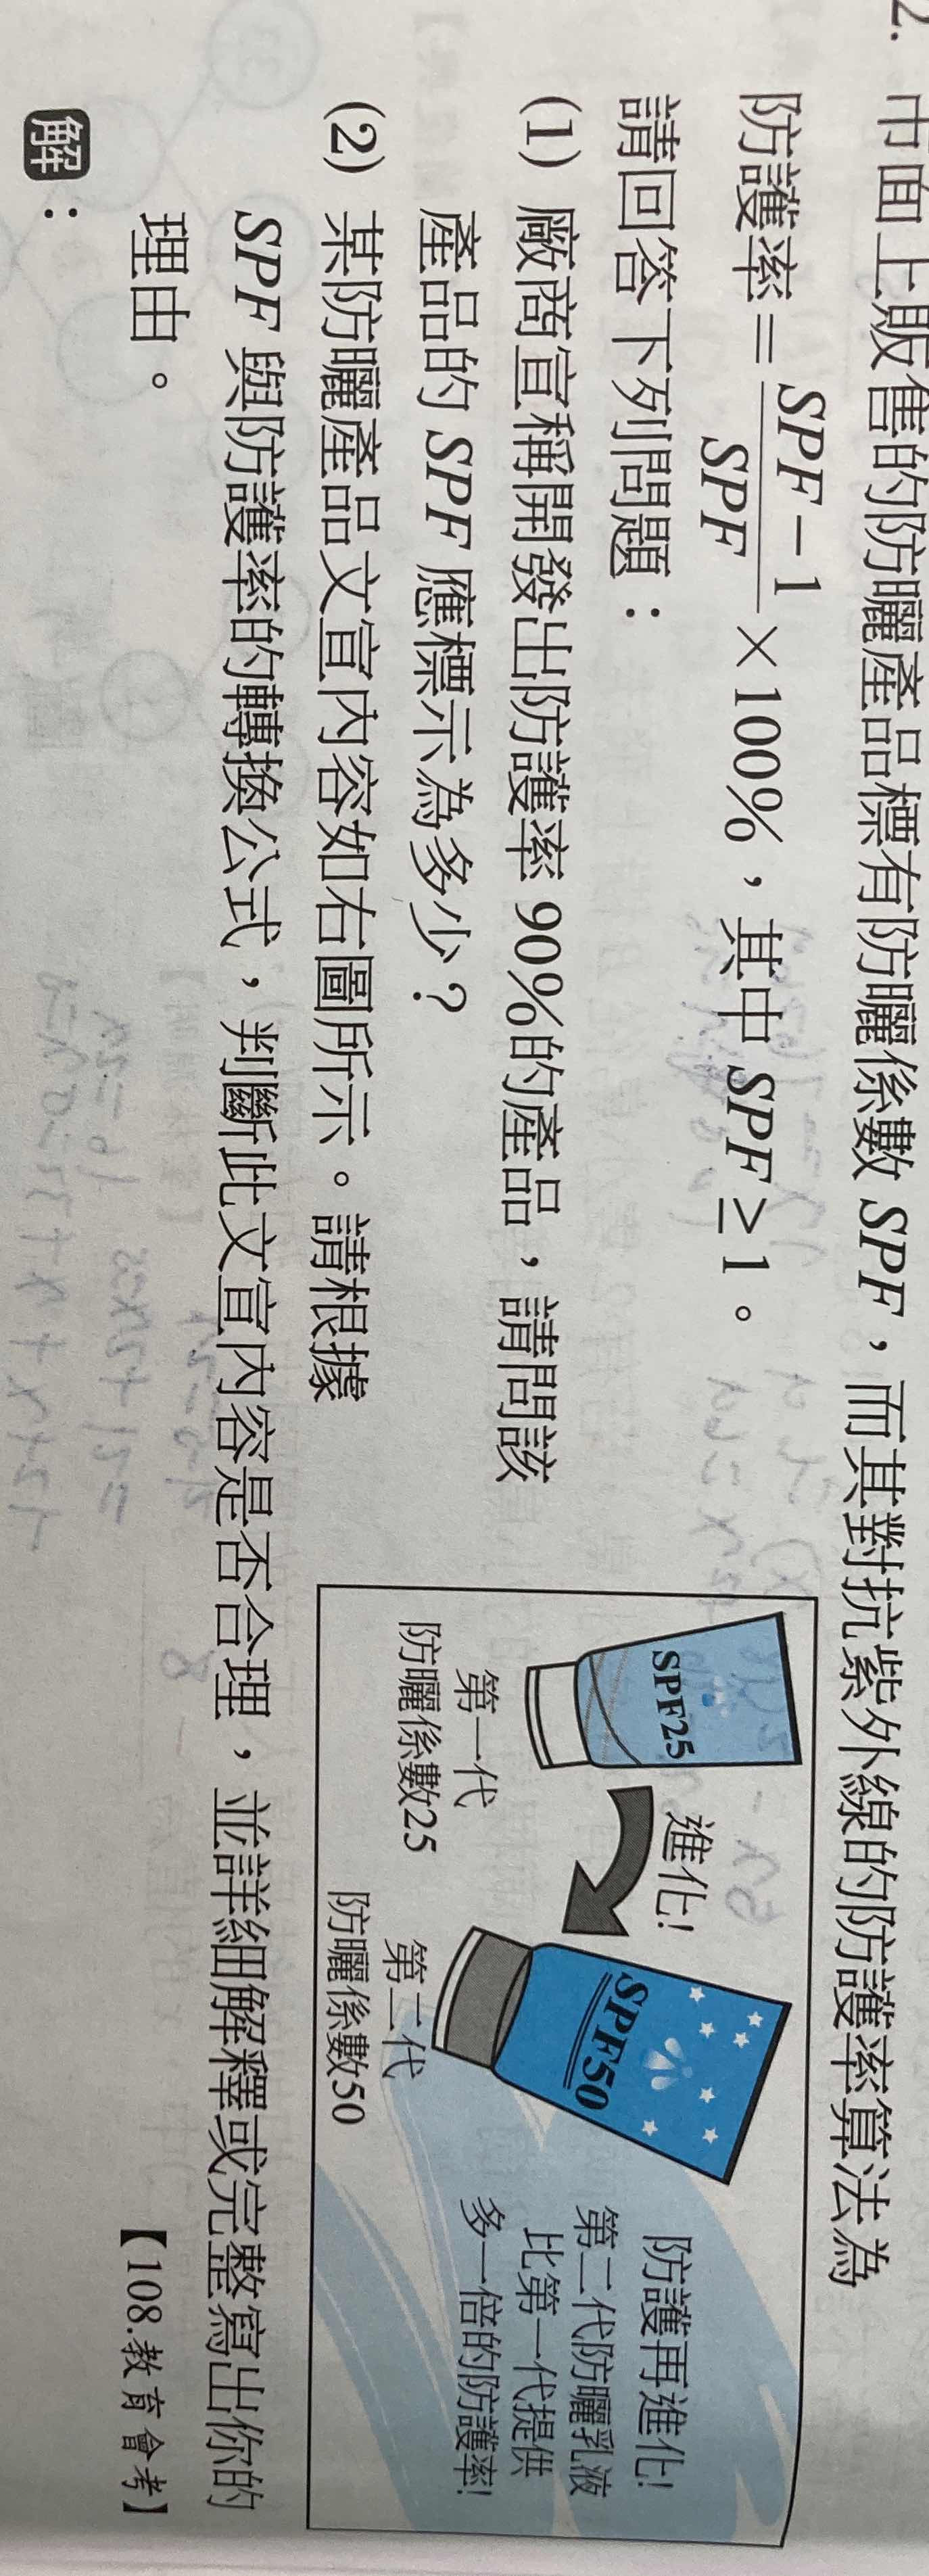 2. 市面上販售的防曬產品標有防曬係數 SPF，而其對抗紫外線的防護率算法為
防護率=\frac{SPF-1}{SPF}×100%，其中 SPF≥1。
請回答下列問題：
(1) 廠商宣稱開發出防護率 90%的產品，請問該
產品的 SPF 應標示為多少？
(2) 某防曬產品文宣內容如右圖所示。請根據
SPF 與防護率的轉換公式，判斷此文宣內容是否合理，並詳細解釋或完整寫出你的
理由。
【108.教育會考】
解：
SPF25
第一代
防曬係數25
進化!
SPF50
第二代
防曬係數50
防護再進化!
第二代防曬乳液
比第一代提供
多一倍的防護率!